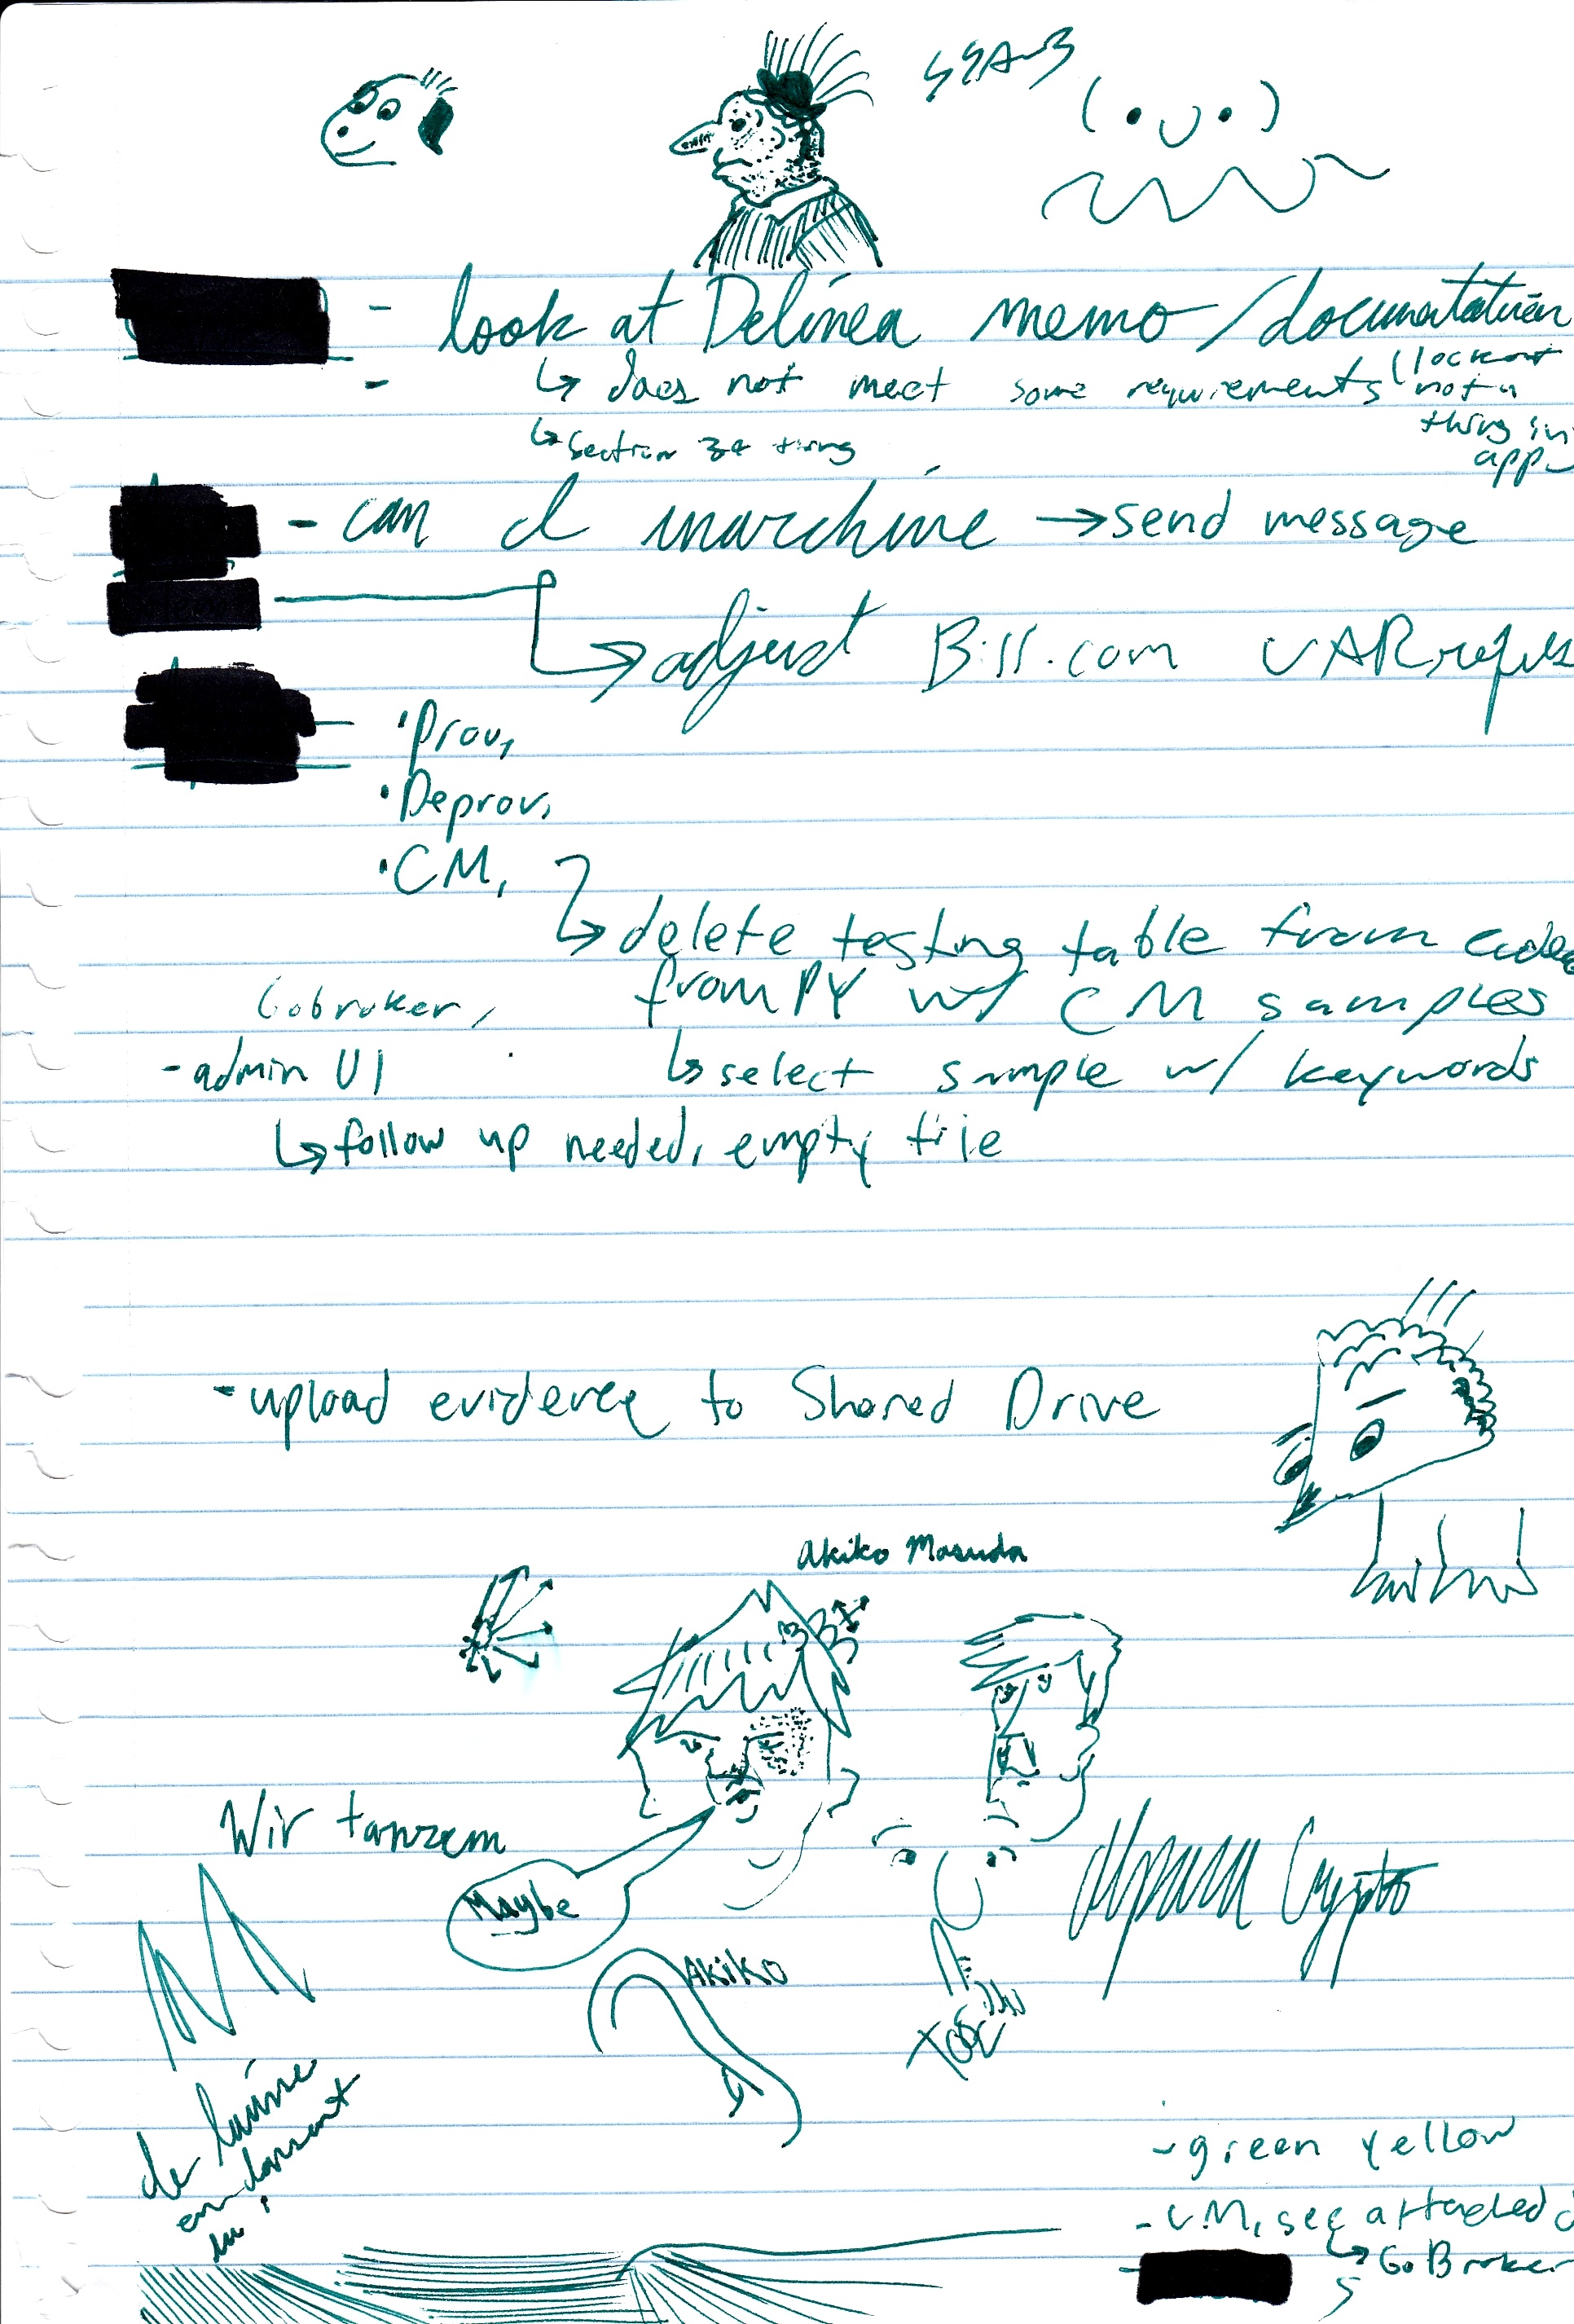 - look at Delinea memo/documentation
- ↳ does not meet some requirements (lockout
not a
thing in
app
↳ section 34 thing
- can I → send message
↳ adjust Bill.com UAR
• Prov,
• Deprov,
• CM,
↳ delete testing table from
from PY w/ CM samples
Gobroker,
- admin UI
↳ select sample w/ keywords
↳ follow up needed, empty file
- upload evidence to Shared Drive
Akiko Masuda
Wir tanzen
Maybe
Crypto
AKIKO
TOE
de
en dansant
- green yellow
- VM, see attached
↳ GoBroker